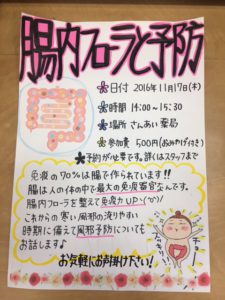 腸内フローラと予防
日付 2016年11月17日(木)
時間 14:00〜15:30
場所 さんあい薬局
参加費 500円(おみやげ付き)
予約が必要です。詳しくはスタッフまで
免疫の70%は腸で作られています!!
腸は人の体の中で最大の免疫器官なんです。
腸内フローラを整えて免疫力UP↑(^o^)/
これからの寒い風邪の流行りやすい
時期に備えて風邪予防についても
お話しますよ♪
お気軽にお声掛け下さい!